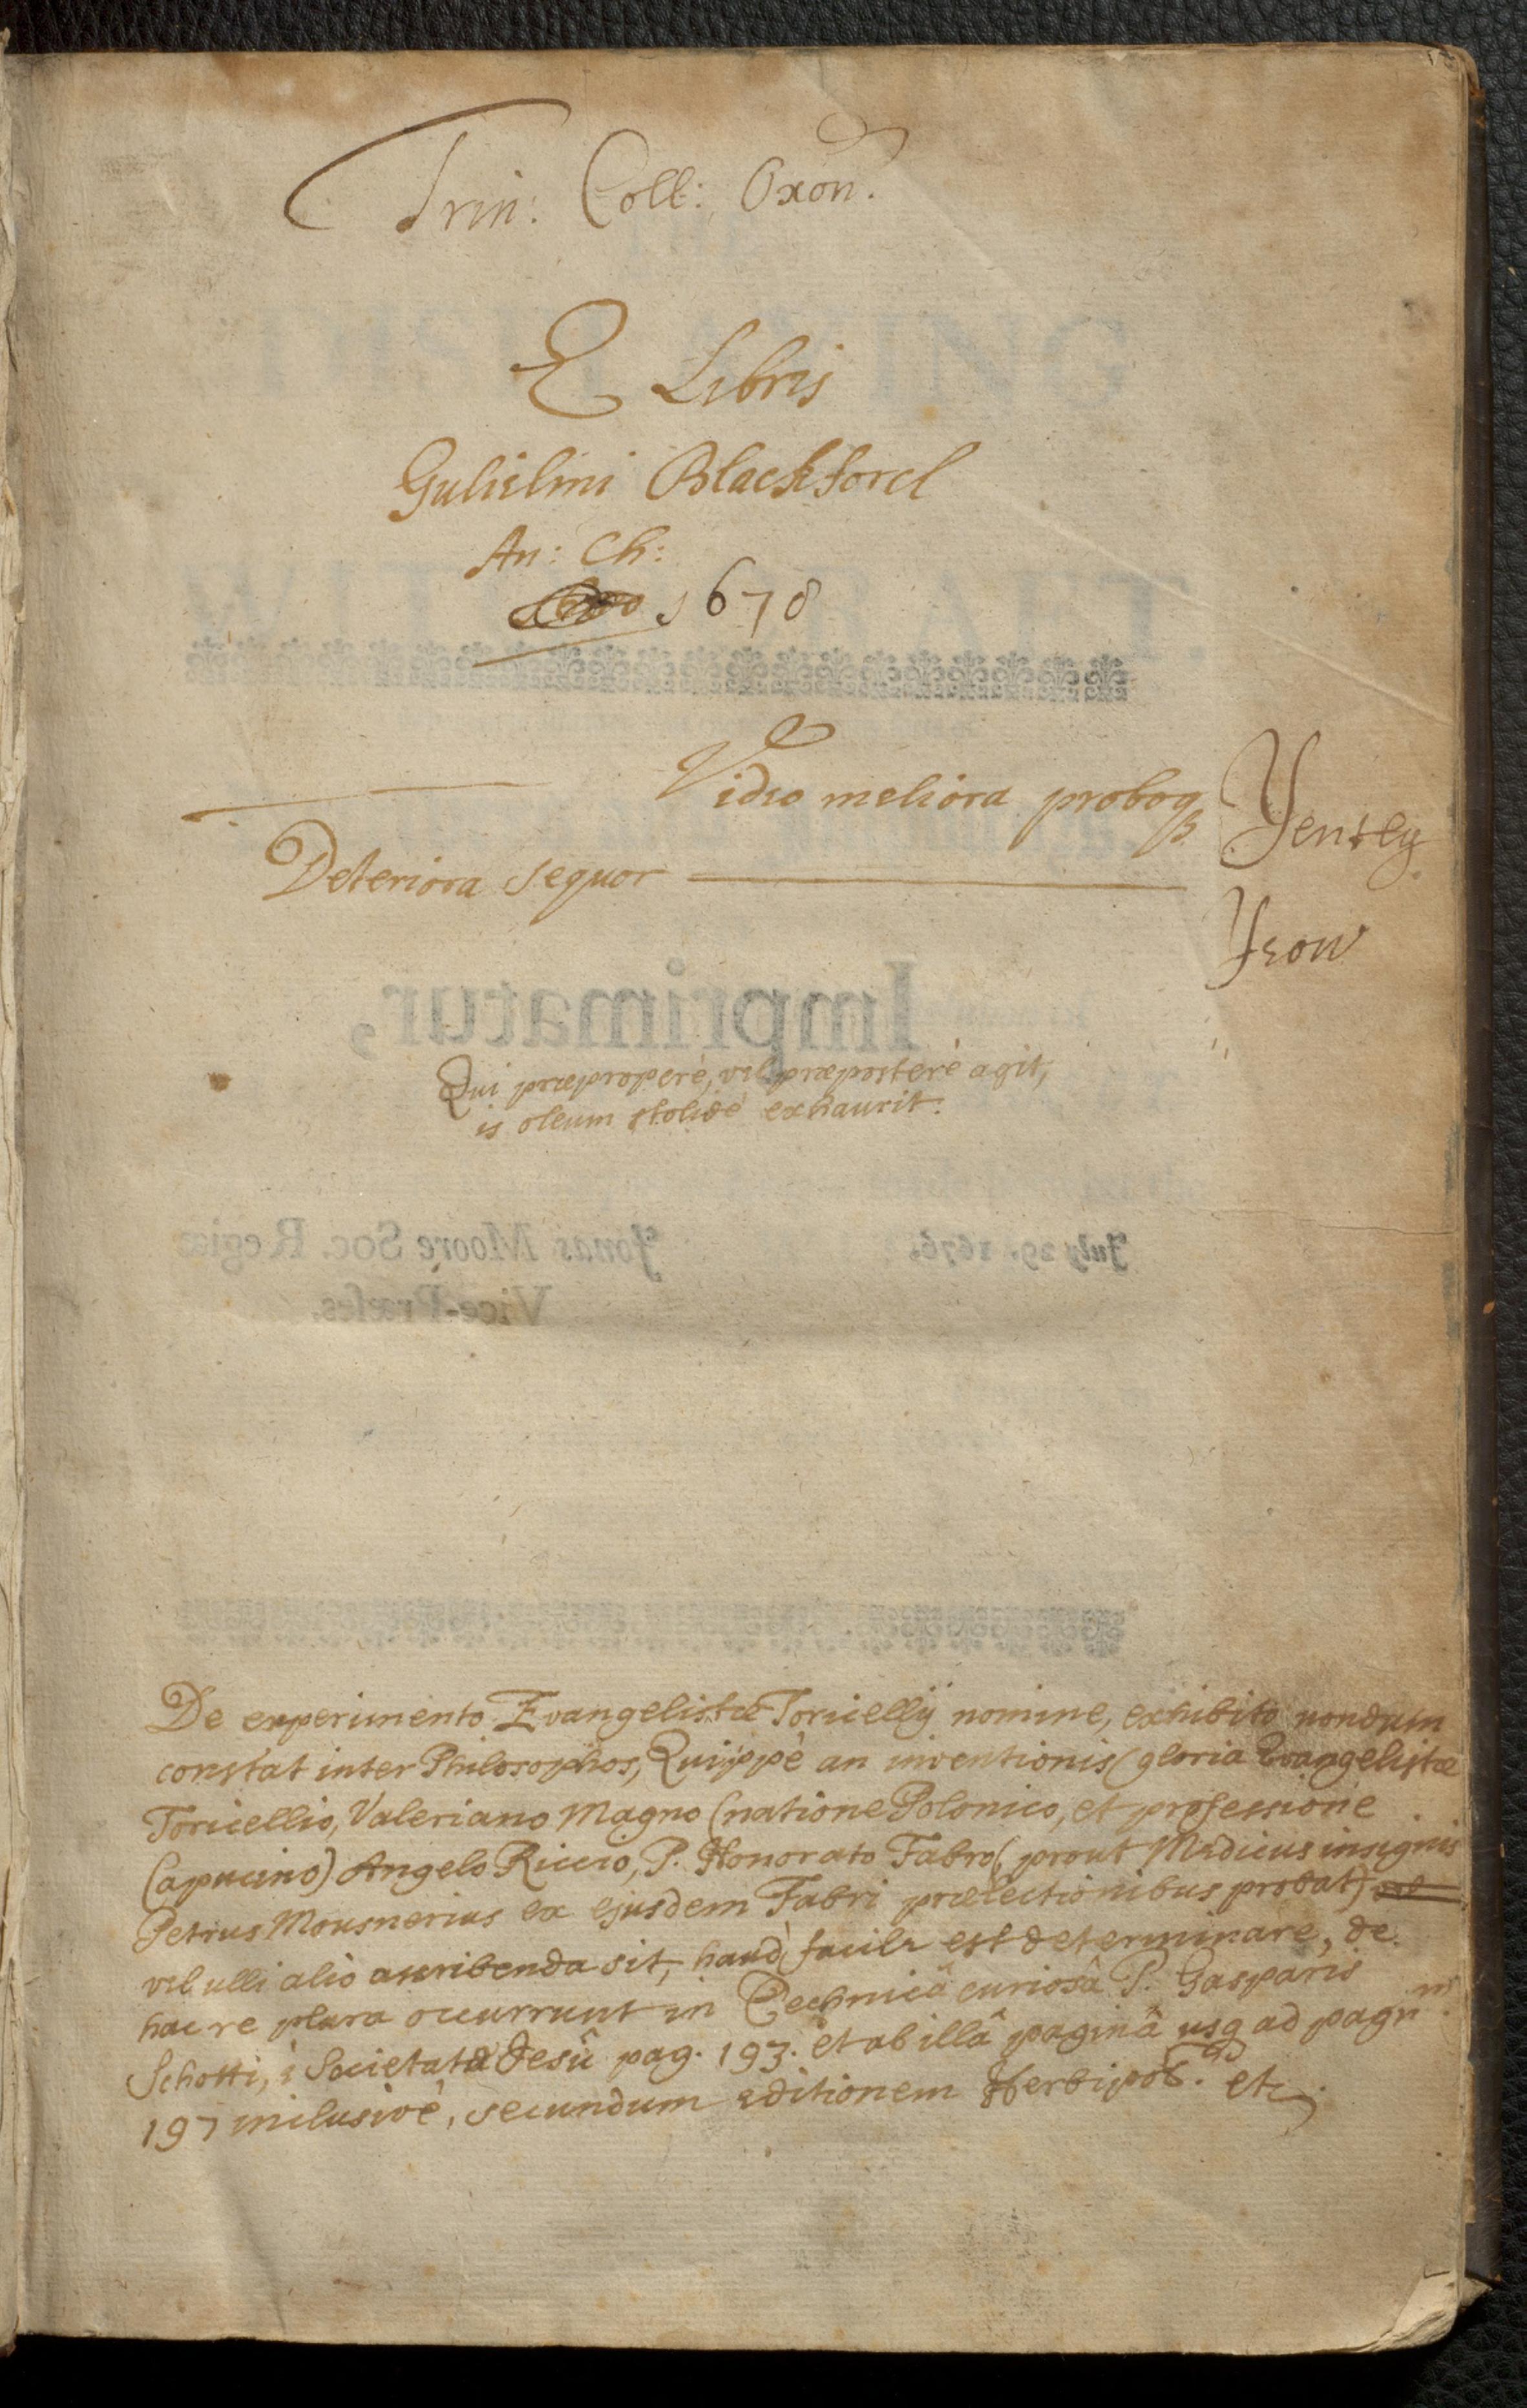 Trin: Coll: Oxon.
E Libris
Gulielmi Blackford
An: Ch:
1678
Video meliora proboq
Deteriora sequor
Yeow
Imprimatur,
Qui præproperè, vel præposterè agit,
is oleum stolidè exhaurit.
July 29. 1676.
Jonas Moore Soc. Regiæ
Vice-Præses.
De experimento Evangelistæ Toricellij nomine, exhibito nondum
constat inter Philosophos, Quippè an inventionis gloria Evangelistæ
Toricellio, Valeriano Magno (natione Polonico, et professione
Capucino) Angelo Riccio, P. Honorato Fabro (prout Medicus insignis
Petrus Mousnerius ex ejusdem Fabri prælectionibus probat)
vel ulli alio ascribenda sit, haud facile est determinare, de
hac re plura occurrunt in Technicâ curiosâ P. Gasparis
Schotti, è Societate Jesû pag. 193. et ab illâ paginâ usq ad pagn
197 inclusivè, secundum editionem Herbipol. etc.